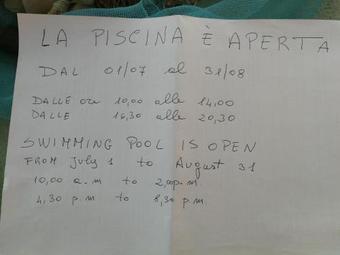 LA PISCINA È APERTA
DAL 01/07 al 31/08
DALLE ore 10,00 alle 14,00
DALLE 16,30 alle 20,30
SWIMMING POOL IS OPEN
FROM July 1 to August 31
10,00 a.m to 2,00p.m.
4,30 p.m to 8,30 p.m.